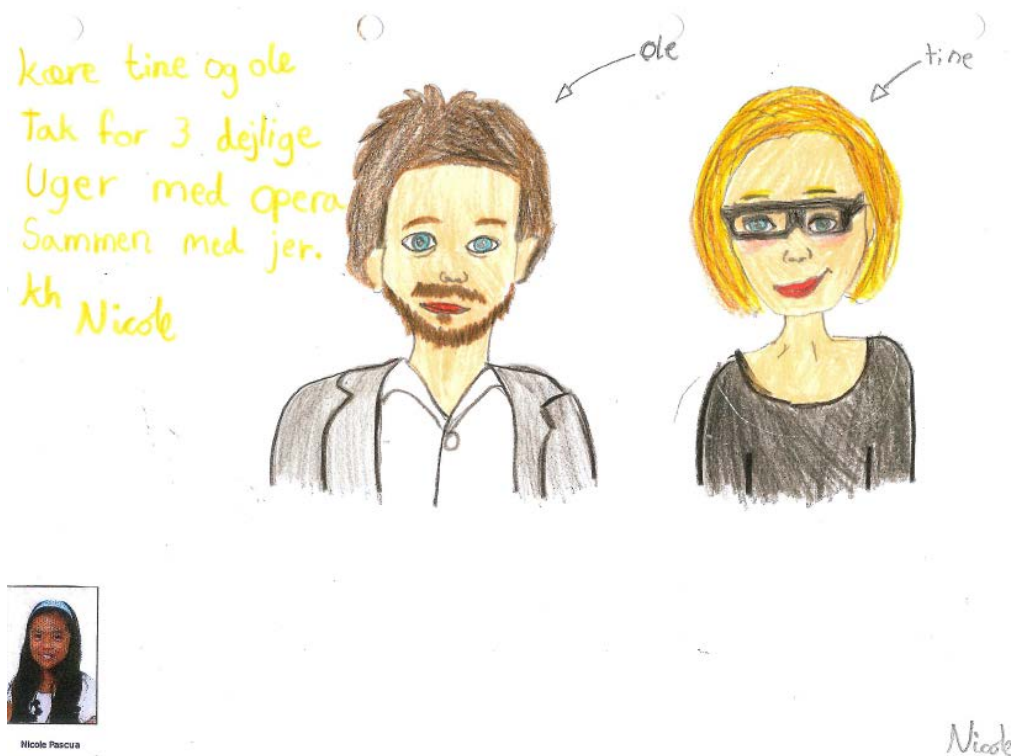 kære tine og ole
Tak for 3 dejlige
Uger med opera
Sammen med jer.
kh
Nicole
ole
tine
Nicole Pascua
Nicole